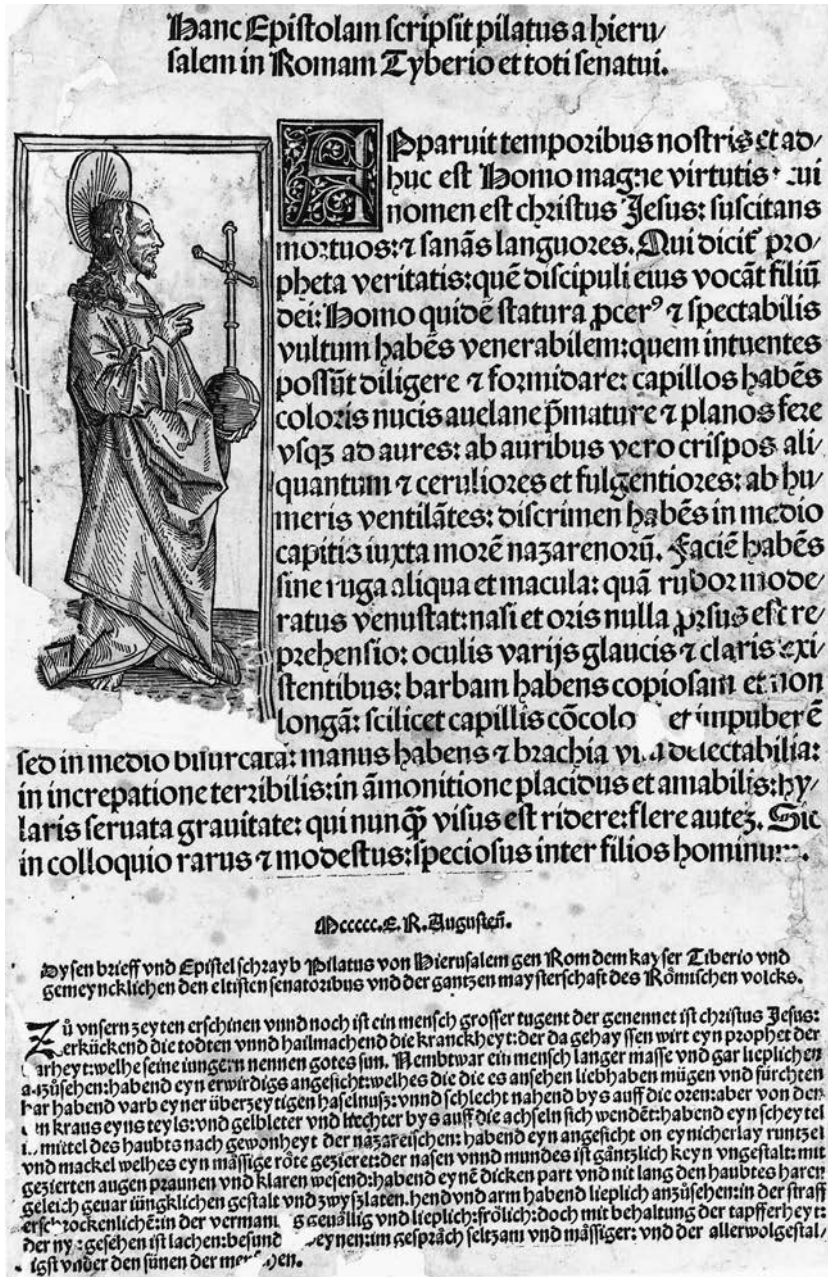 Hanc Epistolam scripsit pilatus a hieru/
salem in Romam Tyberio et toti senatui.
Apparuit temporibus nostris et ad/
huc est Homo magne virtutis: cui
nomen est christus Jesus: suscitans
mortuos: ⁊ sanãs languores. Qui dicit̃ pro/
pheta veritatis: quẽ discipuli eius vocãt filiũ
dei: Homo quidẽ statura ꝓcerꝰ ⁊ spectabilis
vultum habẽs venerabilem: quem intuentes
possũt diligere ⁊ formidare: capillos habẽs
coloris nucis auelane p̃mature ⁊ planos fere
vsqꝫ ad aures: ab auribus vero crispos ali/
quantum ⁊ ceruliores et fulgentiores: ab hu/
meris ventilãtes: discrimen habẽs in medio
capitis iuxta morẽ nazarenorũ. Faciẽ habẽs
sine ruga aliqua et macula: quã rubor mode/
ratus venustat: nasi et oris nulla ꝓrsus est re/
prehensio: oculis varijs glaucis ⁊ claris exi/
stentibus: barbam habens copiosam et non
longã: scilicet capillis cõcolo et impuberẽ
sed in medio bifurcatã: manus habens ⁊ brachia visu delectabilia:
in increpatione terribilis: in ãmonitione placidus et amabilis: hy/
laris seruata grauitate: qui nunqꝫ̃ visus est ridere: flere auteꝫ. Sic
in colloquio rarus ⁊ modestus: speciosus inter filios hominum.
Mccccc. E. R. Augusteñ.
Dysen brieff vnd Epistel schrayb Pilatus von Hierusalem gen Rom dem kayser Tiberio vnd
gemeyncklichen den eltisten senatoribus vnd der gantzen maysterschaft des Rȯmischen volcks.
Zů vnsern zeyten erschinen vnnd noch ist ein mensch grosser tugent der genennet ist christus Jesus:
erkückend die todten vnnd hailmachend die kranckheyt: der da gehayssen wirt eyn prophet der
arheyt: welhe seine iungern nennen gotes sun. Nembtwar ein mensch langer masse vnd gar lieplichen
anzůsehen: habend eyn erwirdigs angesicht: welhes die die es ansehen liebhaben mügen vnd fürchten
har habend varb eyner überzeytigen haselnuß: vnnd schlecht nahend bys auff die oren: aber von den
en kraus eyns teyls: vnd gelbleter vnd liechter bys auff die achseln sich wendẽt: habend eyn scheytel
mittel des haubts nach gewonheyt der nazareischen: habend eyn angesicht on eynicherlay runtzel
vnd mackel welhes eyn mȧssige rȯte gezieret: der nasen vnnd mundes ist gȧntzlich keyn vngestalt: mit
gezierten augen praunen vnd klaren wesend: habend eynẽ dicken part vnd nit lang den haubtes haren
geleich geuar iüngklichen gestalt vnd zwyszlaten. hend vnd arm habend lieplich anzůsehen: in der straff
erschrockenlichẽ: in der vermanu g geuȧllig vnd lieplich: frȯlich: doch mit behaltung der tapfferheyt:
der ny gesehen ist lachen: besund eynen: im gesprȧch seltzam vnd mȧssiger: vnd der allerwolgestal/
igst vnder den sünen der menschen.